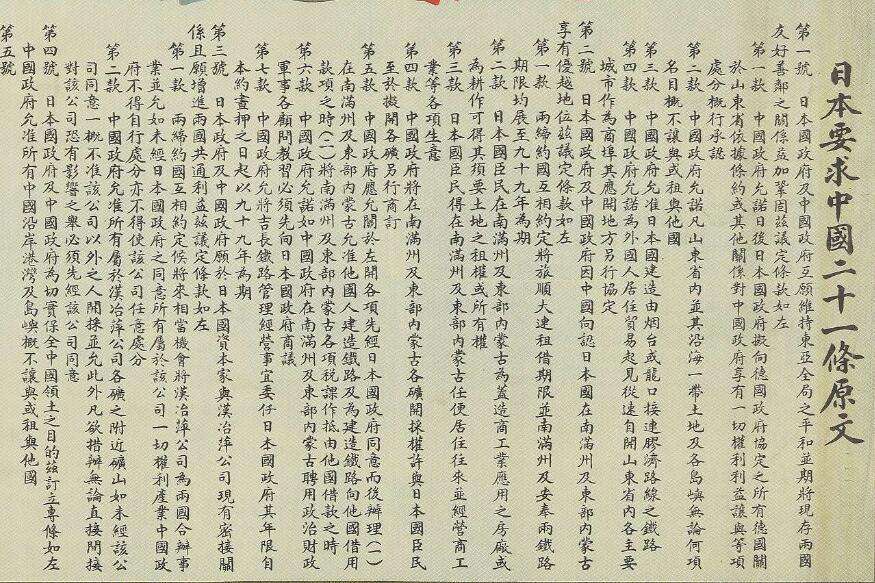 日本要求中國二十一條原文
第一號　日本國政府及中國政府互願維持東亞全局之平和並期將現存兩國
友好善鄰之關係益加鞏固茲議定條款如左
第一款　中國政府允諾日後日本國政府擬向德國政府協定之所有德國關
於山東省依據條約或其他關係對中國政府享有一切權利利益讓與等項
處分概行承認
第二款　中國政府允諾凡山東省內並其沿海一帶土地及各島嶼無論何項
名目概不讓與或租與他國
第三款　中國政府允准日本國建造由烟台或龍口接連膠濟路線之鐵路
第四款　中國政府允諾為外國人居住貿易起見從速自開山東省內各主要
城市作為商埠其應開地方另行協定
第二號　日本國政府及中國政府因中國向認日本國在南滿州及東部內蒙古
享有優越地位茲議定條款如左
第一款　兩締約國互相約定將旅順大連租借期限並南滿州及安奉兩鐵路
期限均展至九十九年為期
第二款　日本國臣民在南滿州及東部內蒙古為蓋造商工業應用之房廠或
為耕作可得其須要土地之租權或所有權
第三款　日本國臣民得在南滿州及東部內蒙古任便居住往來並經營商工
業等各項生意
第四款　中國政府將在南滿州及東部內蒙古各礦開採權許與日本國臣民
至於擬開各礦另行商訂
第五款　中國政府應允關於左開各項先經日本國政府同意而後辦理(一)
在南滿州及東部內蒙古允准他國人建造鐵路及為建造鐵路向他國借用
款項之時(二)將南滿州及東部內蒙古各項稅課作抵由他國借款之時
第六款　中國政府允諾如中國政府在南滿州及東部內蒙古聘用政治財政
軍事各顧問教習必須先向日本國政府商議
第七款　中國政府允將吉長鐵路管理經營事宜委任日本國政府其年限自
本約畫押之日起以九十九年為期
第三號　日本國政府及中國政府願於日本國資本家與漢冶萍公司現有密接關
係且願增進兩國共通利益茲議定條款如左
第一款　兩締約國互相約定俟將來相當機會將漢冶萍公司為兩國合辦事
業並允如未經日本國政府之同意所有屬於該公司一切權利產業中國政
府不得自行處分亦不得使該公司任意處分
第二款　中國政府允准所有屬於漢冶萍公司各礦之附近礦山如未經該公
司同意一概不准該公司以外之人開採並允此外凡欲措辦無論直接間接
對該公司恐有影響之舉必須先經該公司同意
第四號　日本國政府及中國政府為切實保全中國領土之目的茲訂立專條如左
中國政府允准所有中國沿岸港灣及島嶼概不讓與或租與他國
第五號